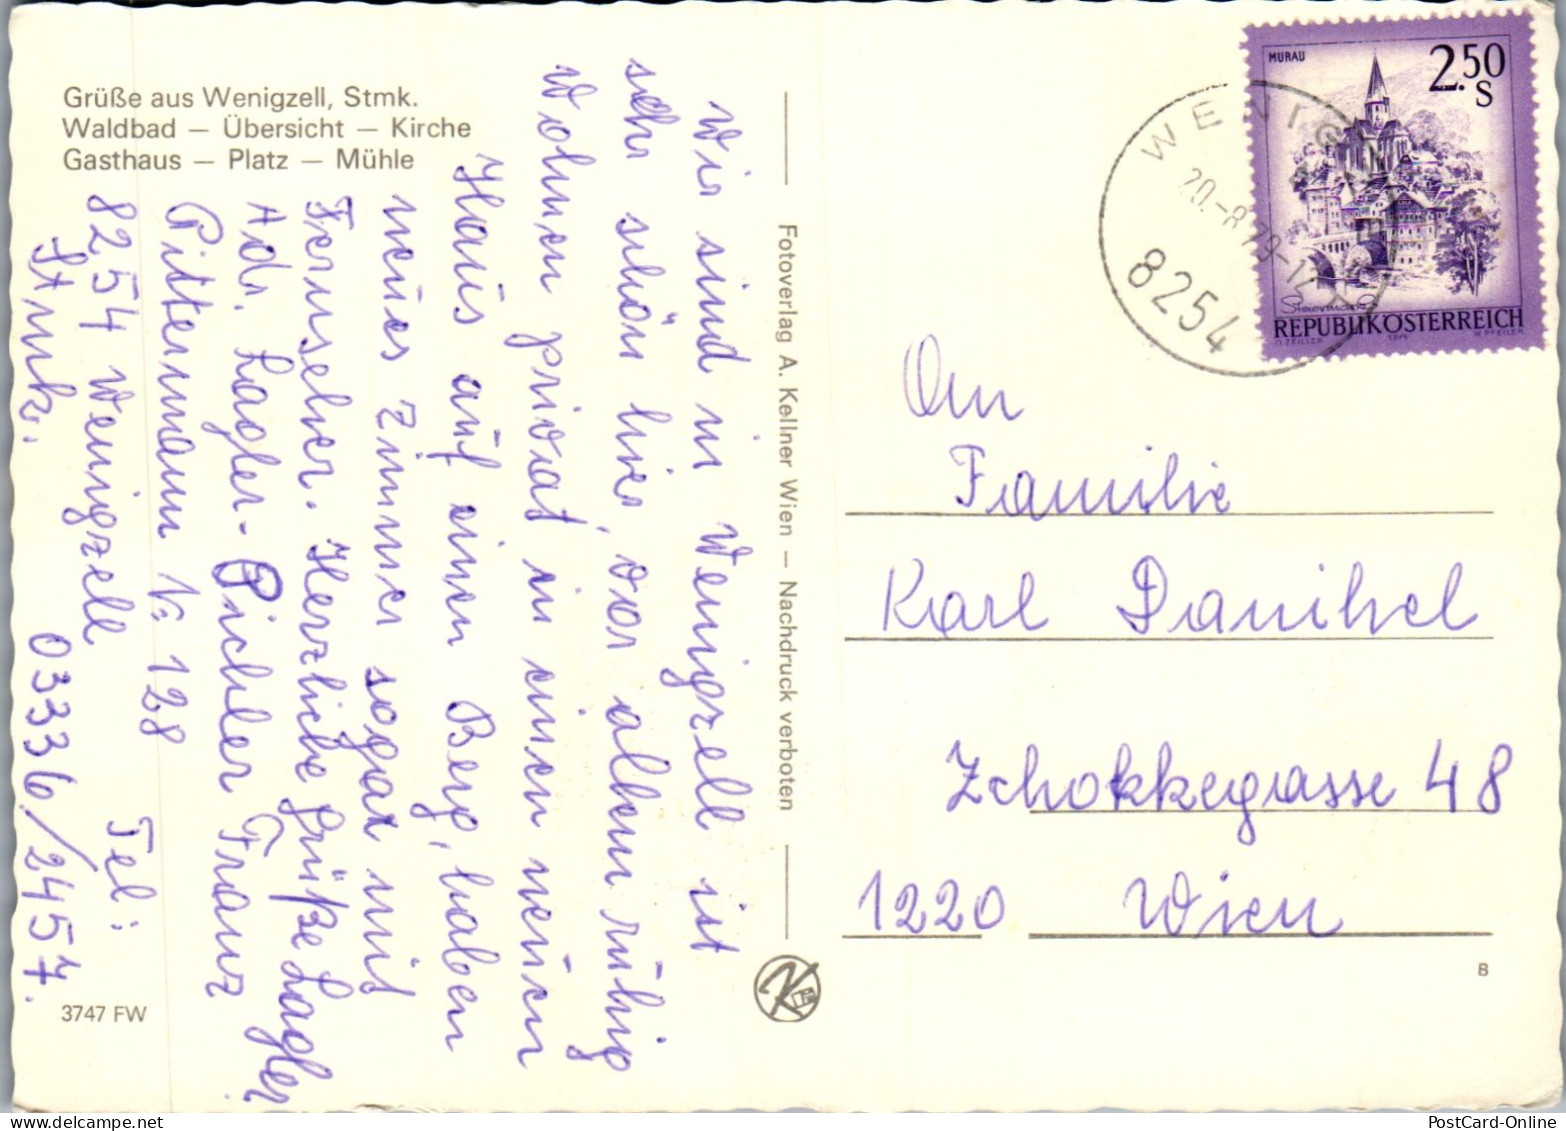 Grüße aus Wenigzell, Stmk.
Waldbad — Übersicht — Kirche
Gasthaus — Platz — Mühle
Wir sind in Wenigzell ist
sehr schön hier, vor allem ruhig
wohnen privat in einen neuen
Haus auf einen Berg, haben
neues Zimmer sogar mit
Fernseher. Herzliche Grüße Lagler
Adr. Lagler-Pichler Franz
Pittermann Nr. 128
8254 Wenigzell Tel:
Stmk. 03336/2457.
3747 FW
Fotoverlag A. Kellner Wien — Nachdruck verboten
MURAU
2.50
S
Steiermark
REPUBLIK ÖSTERREICH
O. ZEILLER
W. PFEILER
WENIGZELL
20.-8.79-12
8254
An
Familie
Karl Danihel
Zchokkegasse 48
1220 Wien
B
PostCard-Online